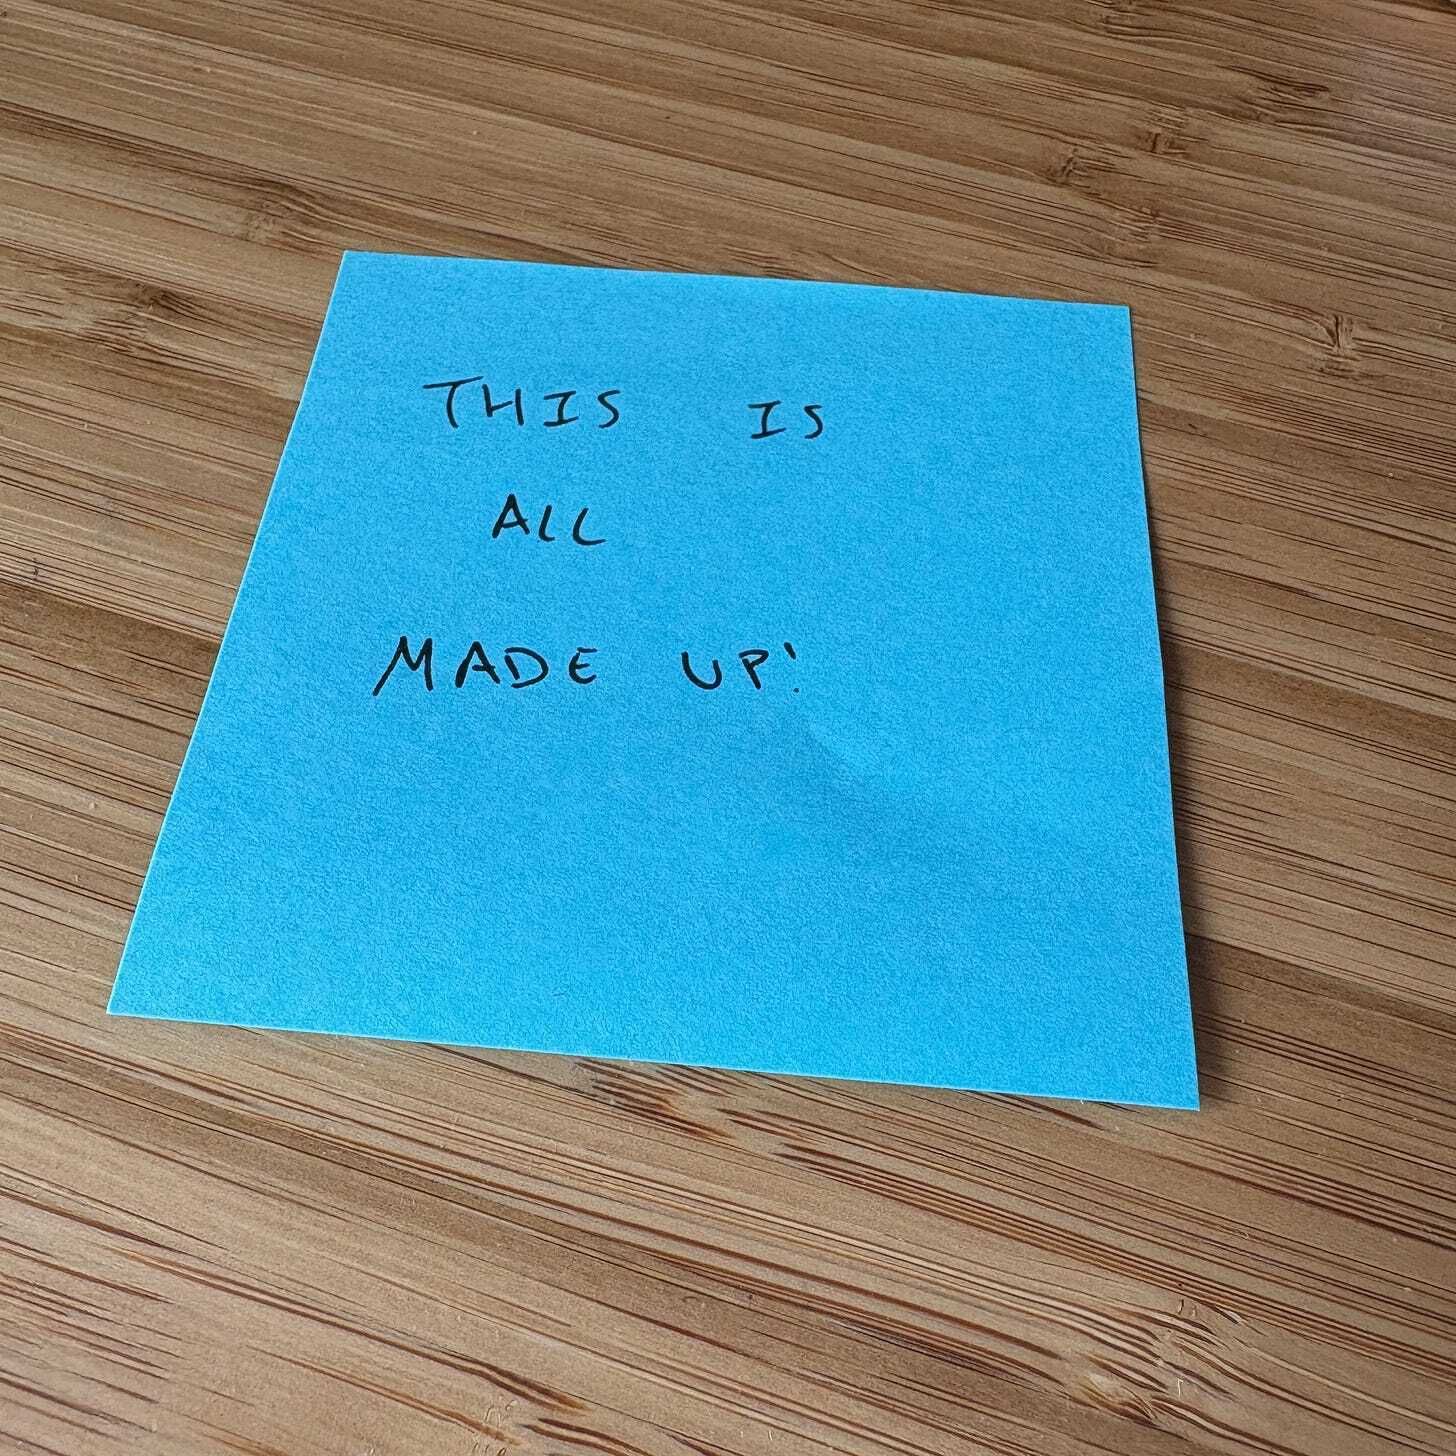 THIS IS
ALL
MADE UP!